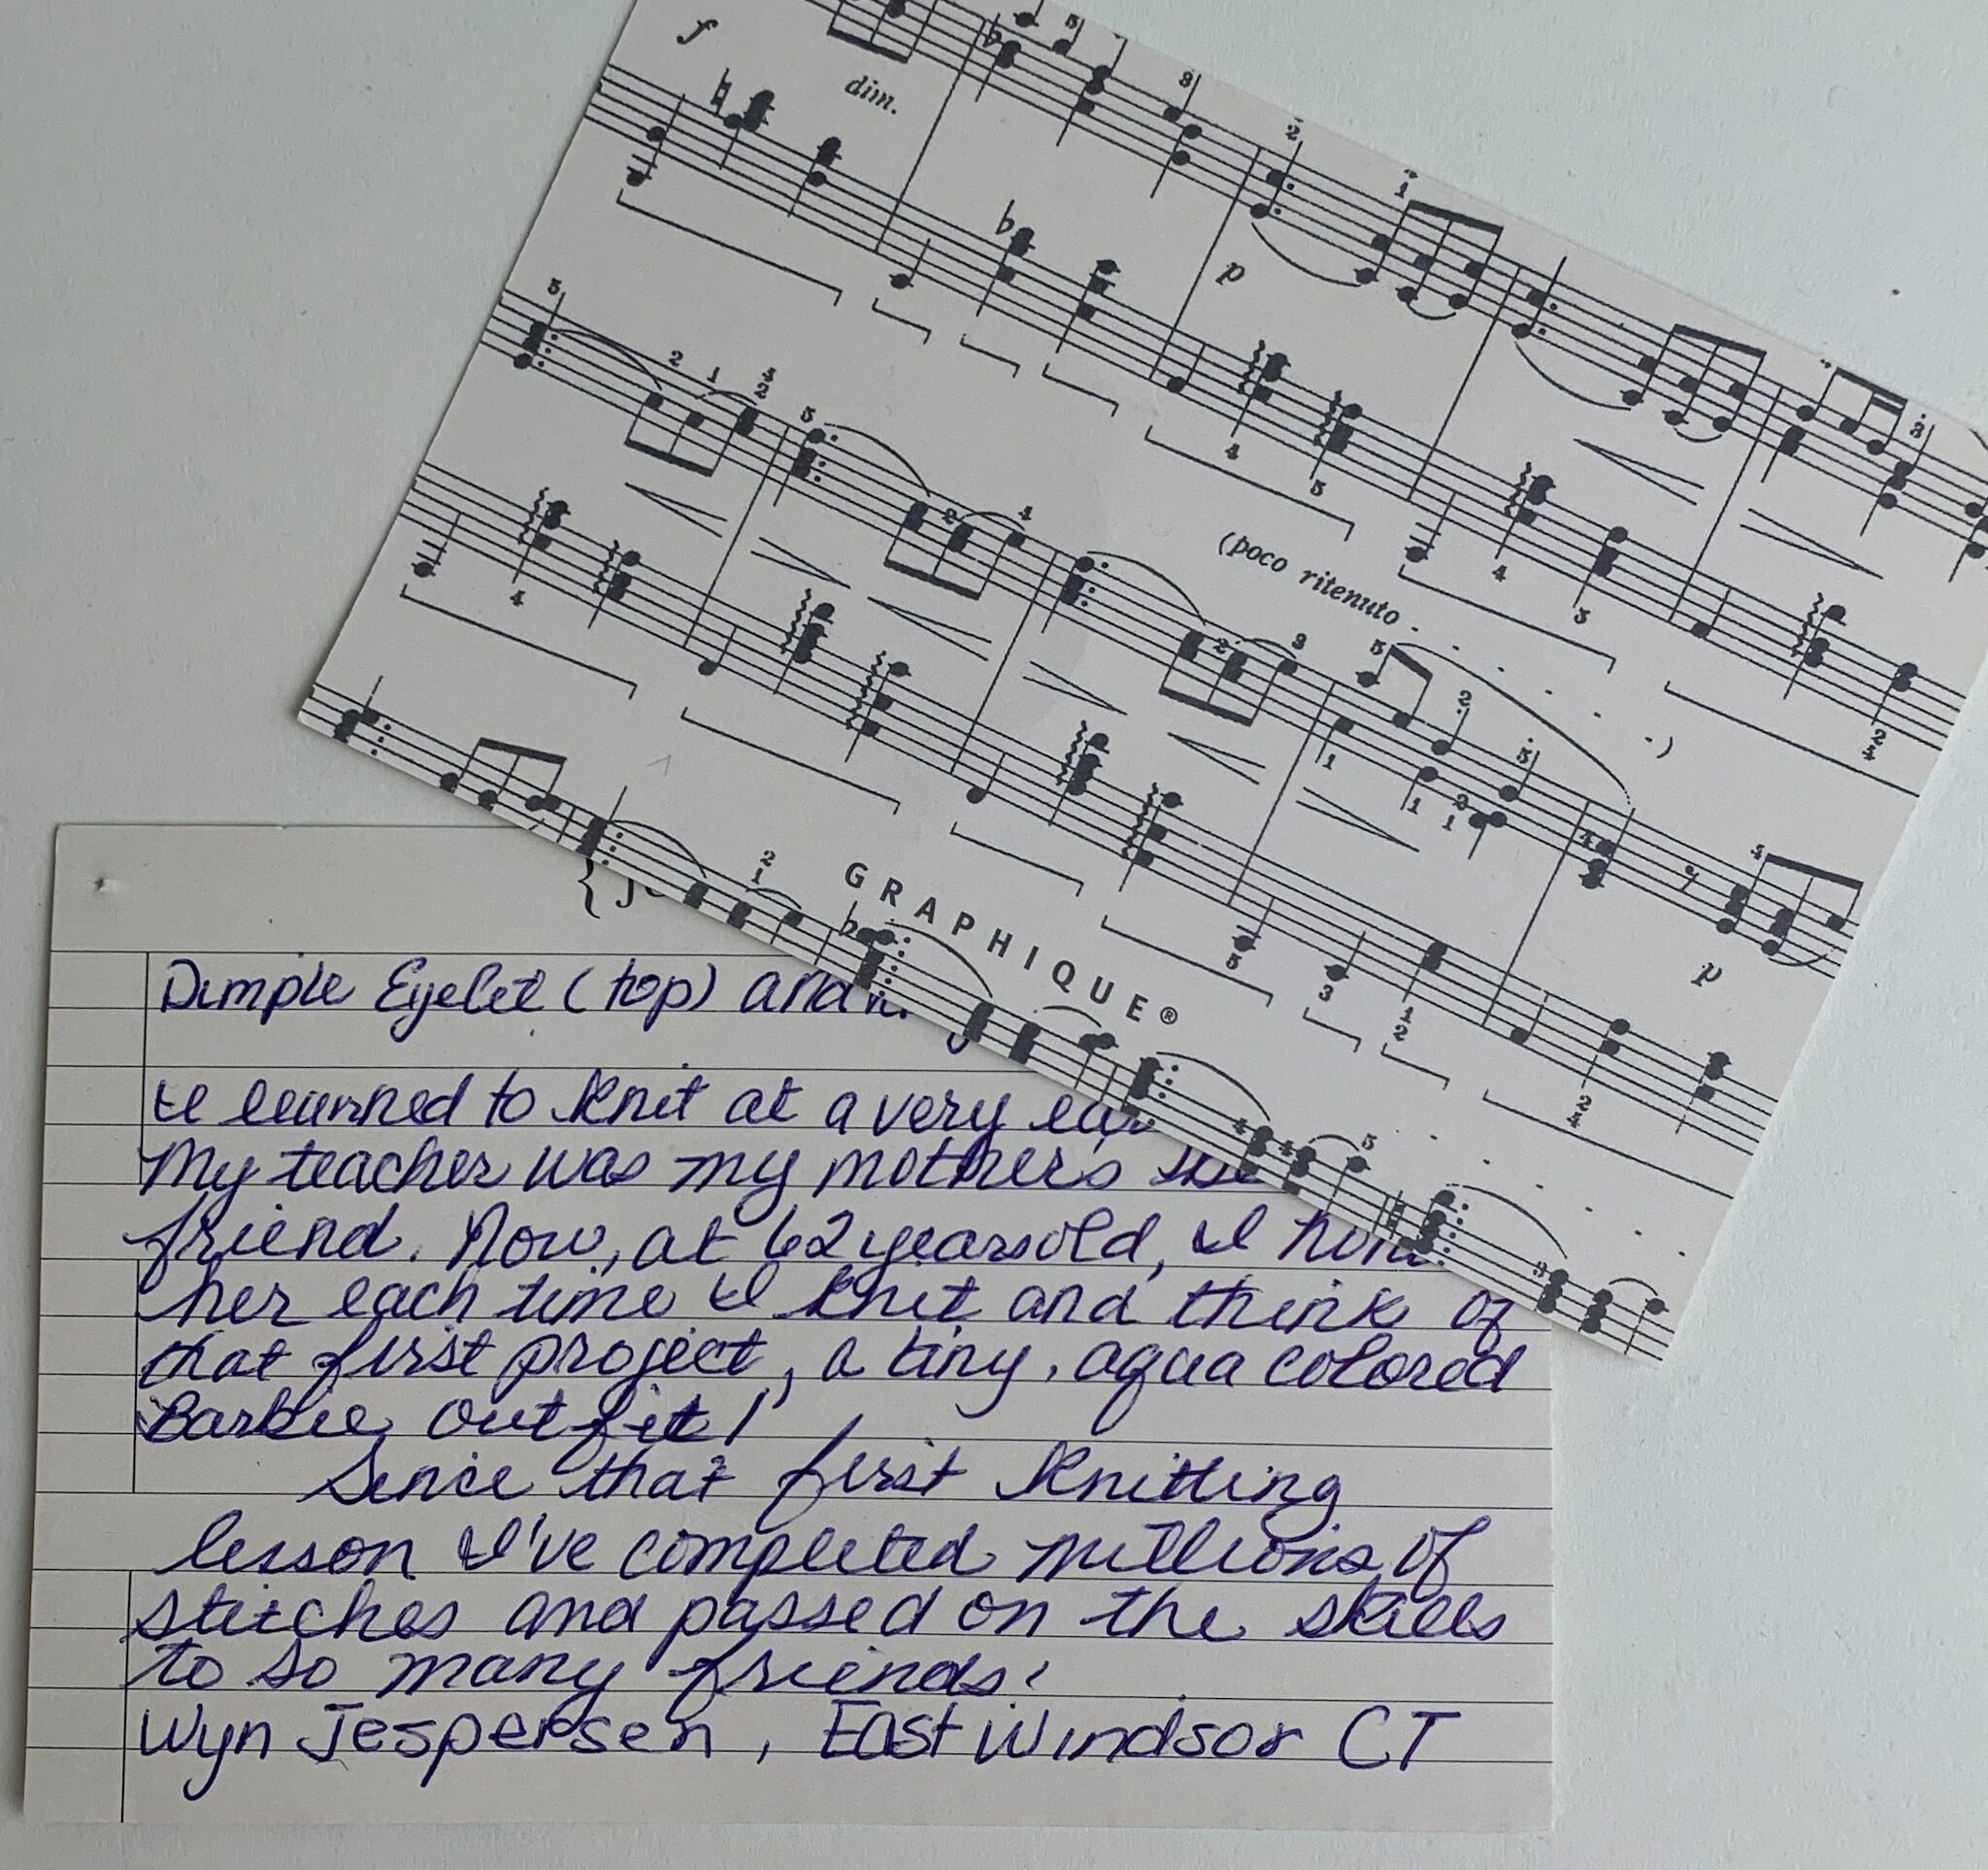 f
dim.
p
(poco ritenuto - - - - - -)
GRAPHIQUE®
p
Dimple Eyelet (top) and
I learned to knit at a very
My teacher was my mother's
friend. Now, at 62 years old, I
her each time I knit and think of
that first project, a tiny, aqua colored
Barbie outfit!
Since that first knitting
lesson I've completed millions of
stitches and passed on the skills
to so many friends!
Wyn Jespersen, East Windsor CT